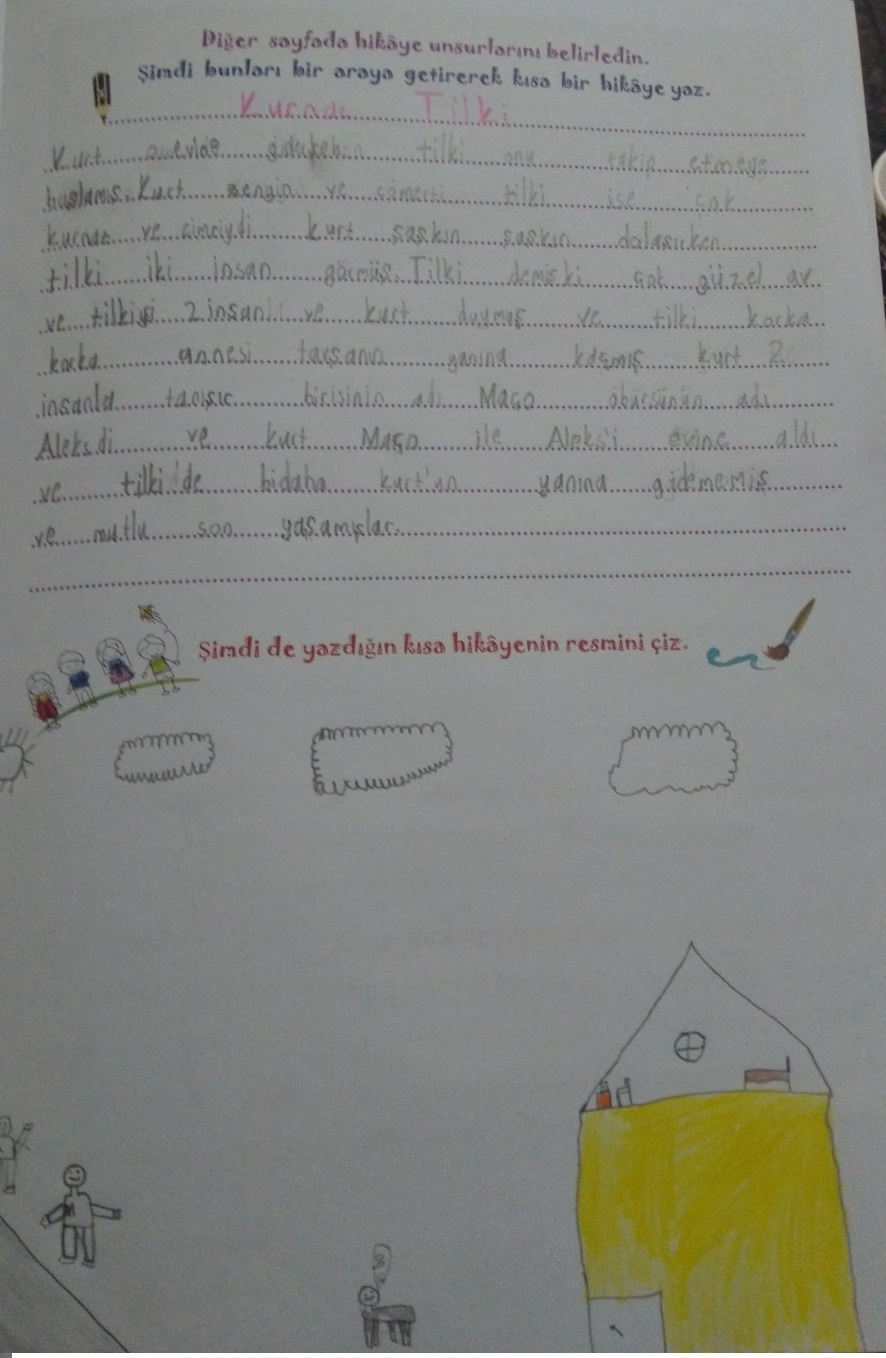 Diğer sayfada hikâye unsurlarını belirledin.
Şimdi bunları bir araya getirerek kısa bir hikâye yaz.
Kurnaz Tilki
Kurt tilki onu takip etmeye
başlamış. Kurt zengin ve cömertti tilki ise çok
kurnaz ve cimriydi kurt şaşkın şaskın dolaşırken
tilki iki insan görmüş. Tilki demiş ki çok güzel av
ve 2 insanlı ve kurt duymuş ve tilki korka
korka annesi tavşanın yanına kaçmış kurt 2
insanla tanışır birisinin adı Maço öbürsünün adı
Aleks.di ve kurt Maço ile Aleks'i evine aldı
ve tilki'de bidaha kurt'un yanına gidememiş
ve mutlu son yaşamışlar.
Şimdi de yazdığın kısa hikâyenin resmini çiz.